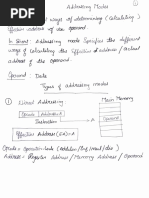 Addressing Modes
①
ways of determining (calculating)
Effective address of the operand
In Short: Addressing mode Specifies the different
ways of calculating the Effective address / Actual
address of the operand.
Operand : Data
Types of addressing modes
① Direct Addressing
Main Memory
Opcode | Address (A)
Instruction
A
Operand
Effective Address (EA) = A
Address = Register Address / Memory Address / Operand